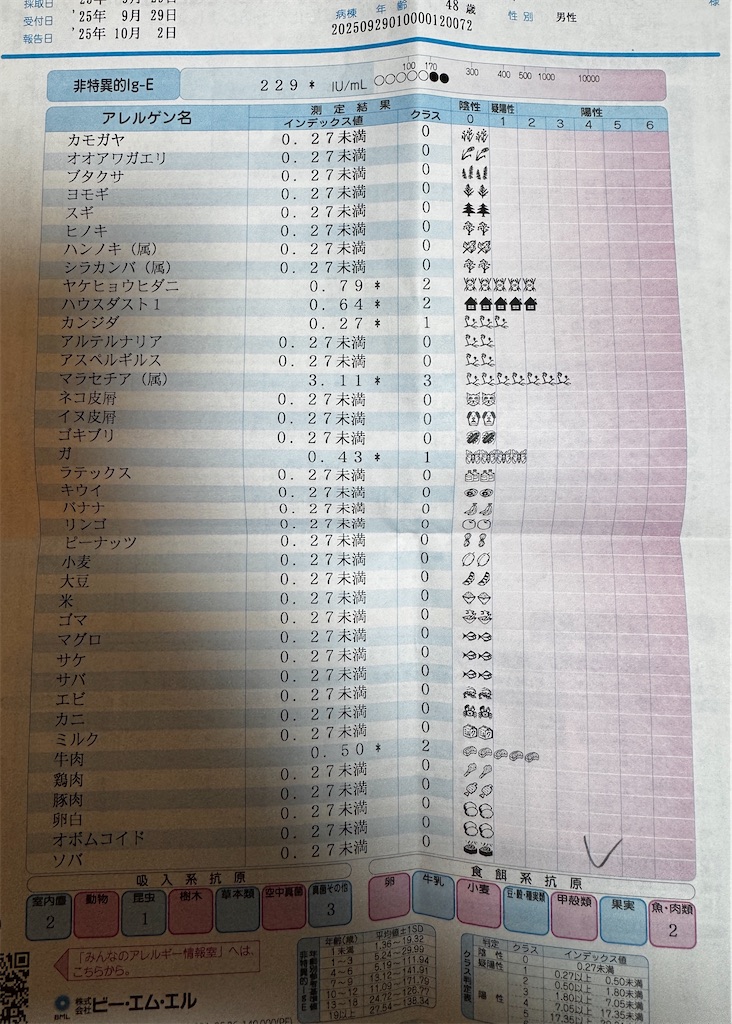 採取日 '25年 9月 29日
受付日 '25年 9月 29日
報告日 '25年 10月 2日
病棟 年齢 48 歳
性別 男性
様
20250929010000120072
非特異的Ig-E 229 * IU/mL
100 170 300 400 500 1000 10000
アレルゲン名 測定結果 インデックス値 クラス 陰性 疑陽性 陽性
0 1 2 3 4 5 6
カモガヤ 0.27未満 0
オオアワガエリ 0.27未満 0
ブタクサ 0.27未満 0
ヨモギ 0.27未満 0
スギ 0.27未満 0
ヒノキ 0.27未満 0
ハンノキ（属） 0.27未満 0
シラカンバ（属） 0.27未満 0
ヤケヒョウヒダニ 0.79 * 2
ハウスダスト1 0.64 * 2
カンジダ 0.27 * 1
アルテルナリア 0.27未満 0
アスペルギルス 0.27未満 0
マラセチア（属） 3.11 * 3
ネコ皮屑 0.27未満 0
イヌ皮屑 0.27未満 0
ゴキブリ 0.27未満 0
ガ 0.43 * 1
ラテックス 0.27未満 0
キウイ 0.27未満 0
バナナ 0.27未満 0
リンゴ 0.27未満 0
ピーナッツ 0.27未満 0
小麦 0.27未満 0
大豆 0.27未満 0
米 0.27未満 0
ゴマ 0.27未満 0
マグロ 0.27未満 0
サケ 0.27未満 0
サバ 0.27未満 0
エビ 0.27未満 0
カニ 0.27未満 0
ミルク 0.27未満 0
牛肉 0.50 * 2
鶏肉 0.27未満 0
豚肉 0.27未満 0
卵白 0.27未満 0
オボムコイド 0.27未満 0
ソバ 0.27未満 0
吸入系抗原 食餌系抗原
室内塵 2 動物 昆虫 1 樹木 草本類 空中真菌 真菌その他 3 卵 牛乳 小麦 豆・穀・種実類 甲殻類 果実 魚・肉類 2
「みんなのアレルギー情報室」へは、
こちらから。
BML 株式会社 ビー・エム・エル
年齢(歳) 平均値±1SD
1未満 1.36～19.32
1～3 5.24～29.99
4～6 5.19～111.94
7～9
10～12
13～18
19以上
判定 クラス インデックス値
陰性 0 0.27未満
疑陽性 1 0.27以上 0.50未満
陽性 2 0.50以上 1.80未満
3 1.80以上 7.05未満
4 7.05以上 17.35未満
クラス判定表